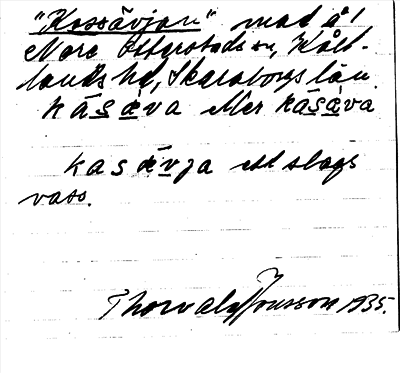 "Kossävjan" mad å
Nore Otterstads sn, Kål-
lands hd, Skaraborgs län.
kásàva eller kásàva
kasávja ett slags
vass.
Thorvald Jonsson 1935.